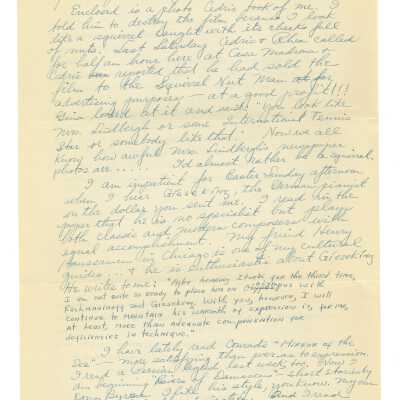 Enclosed is a photo Cedric took of me. I
told him to destroy the film because I look
like a squirrel caught with its cheeks full
of nuts. Last Saturday Cedric & Rhea called
for half an hour here at Casa Madrona &
Cedric reported that he had sold the
film to the Squirrel Nut Man for
advertising purposes — at a good profit!!!
looked at it and said: "You look like
Mrs. Lindbergh or some International Tennis
Star or somebody like that." Now we all
know how awful Mrs. Lindbergh's newspaper
photos are..... I'd almost rather be a squirrel.
I am impatient for Easter Sunday afternoon
when I hear Gieseking, the German pianist
on the dollar you sent me. I read in the
paper that he is no specialist but plays
both classic and modern composers with
equal accomplishment. My friend Henry
in Chicago is one of my cultural
guides... & he is enthusiastic about Gieseking.
He writes to me: "After hearing Iturbi for the third time,
I am not quite so ready to place him on Olympus with
Rachmaninoff and Gieseking. With you, however, I will
continue to maintain his warmth of expression is, for me,
at least, more than adequate compensation for
deficiencies in technique."
I have lately read Conrad's "Mirror of the
Sea" — more satisfying than ever in expression.
I read a Persian last week, too. Now I
am beginning of Damascus" — short stories by
Donn Byrne. I like his style, you know.